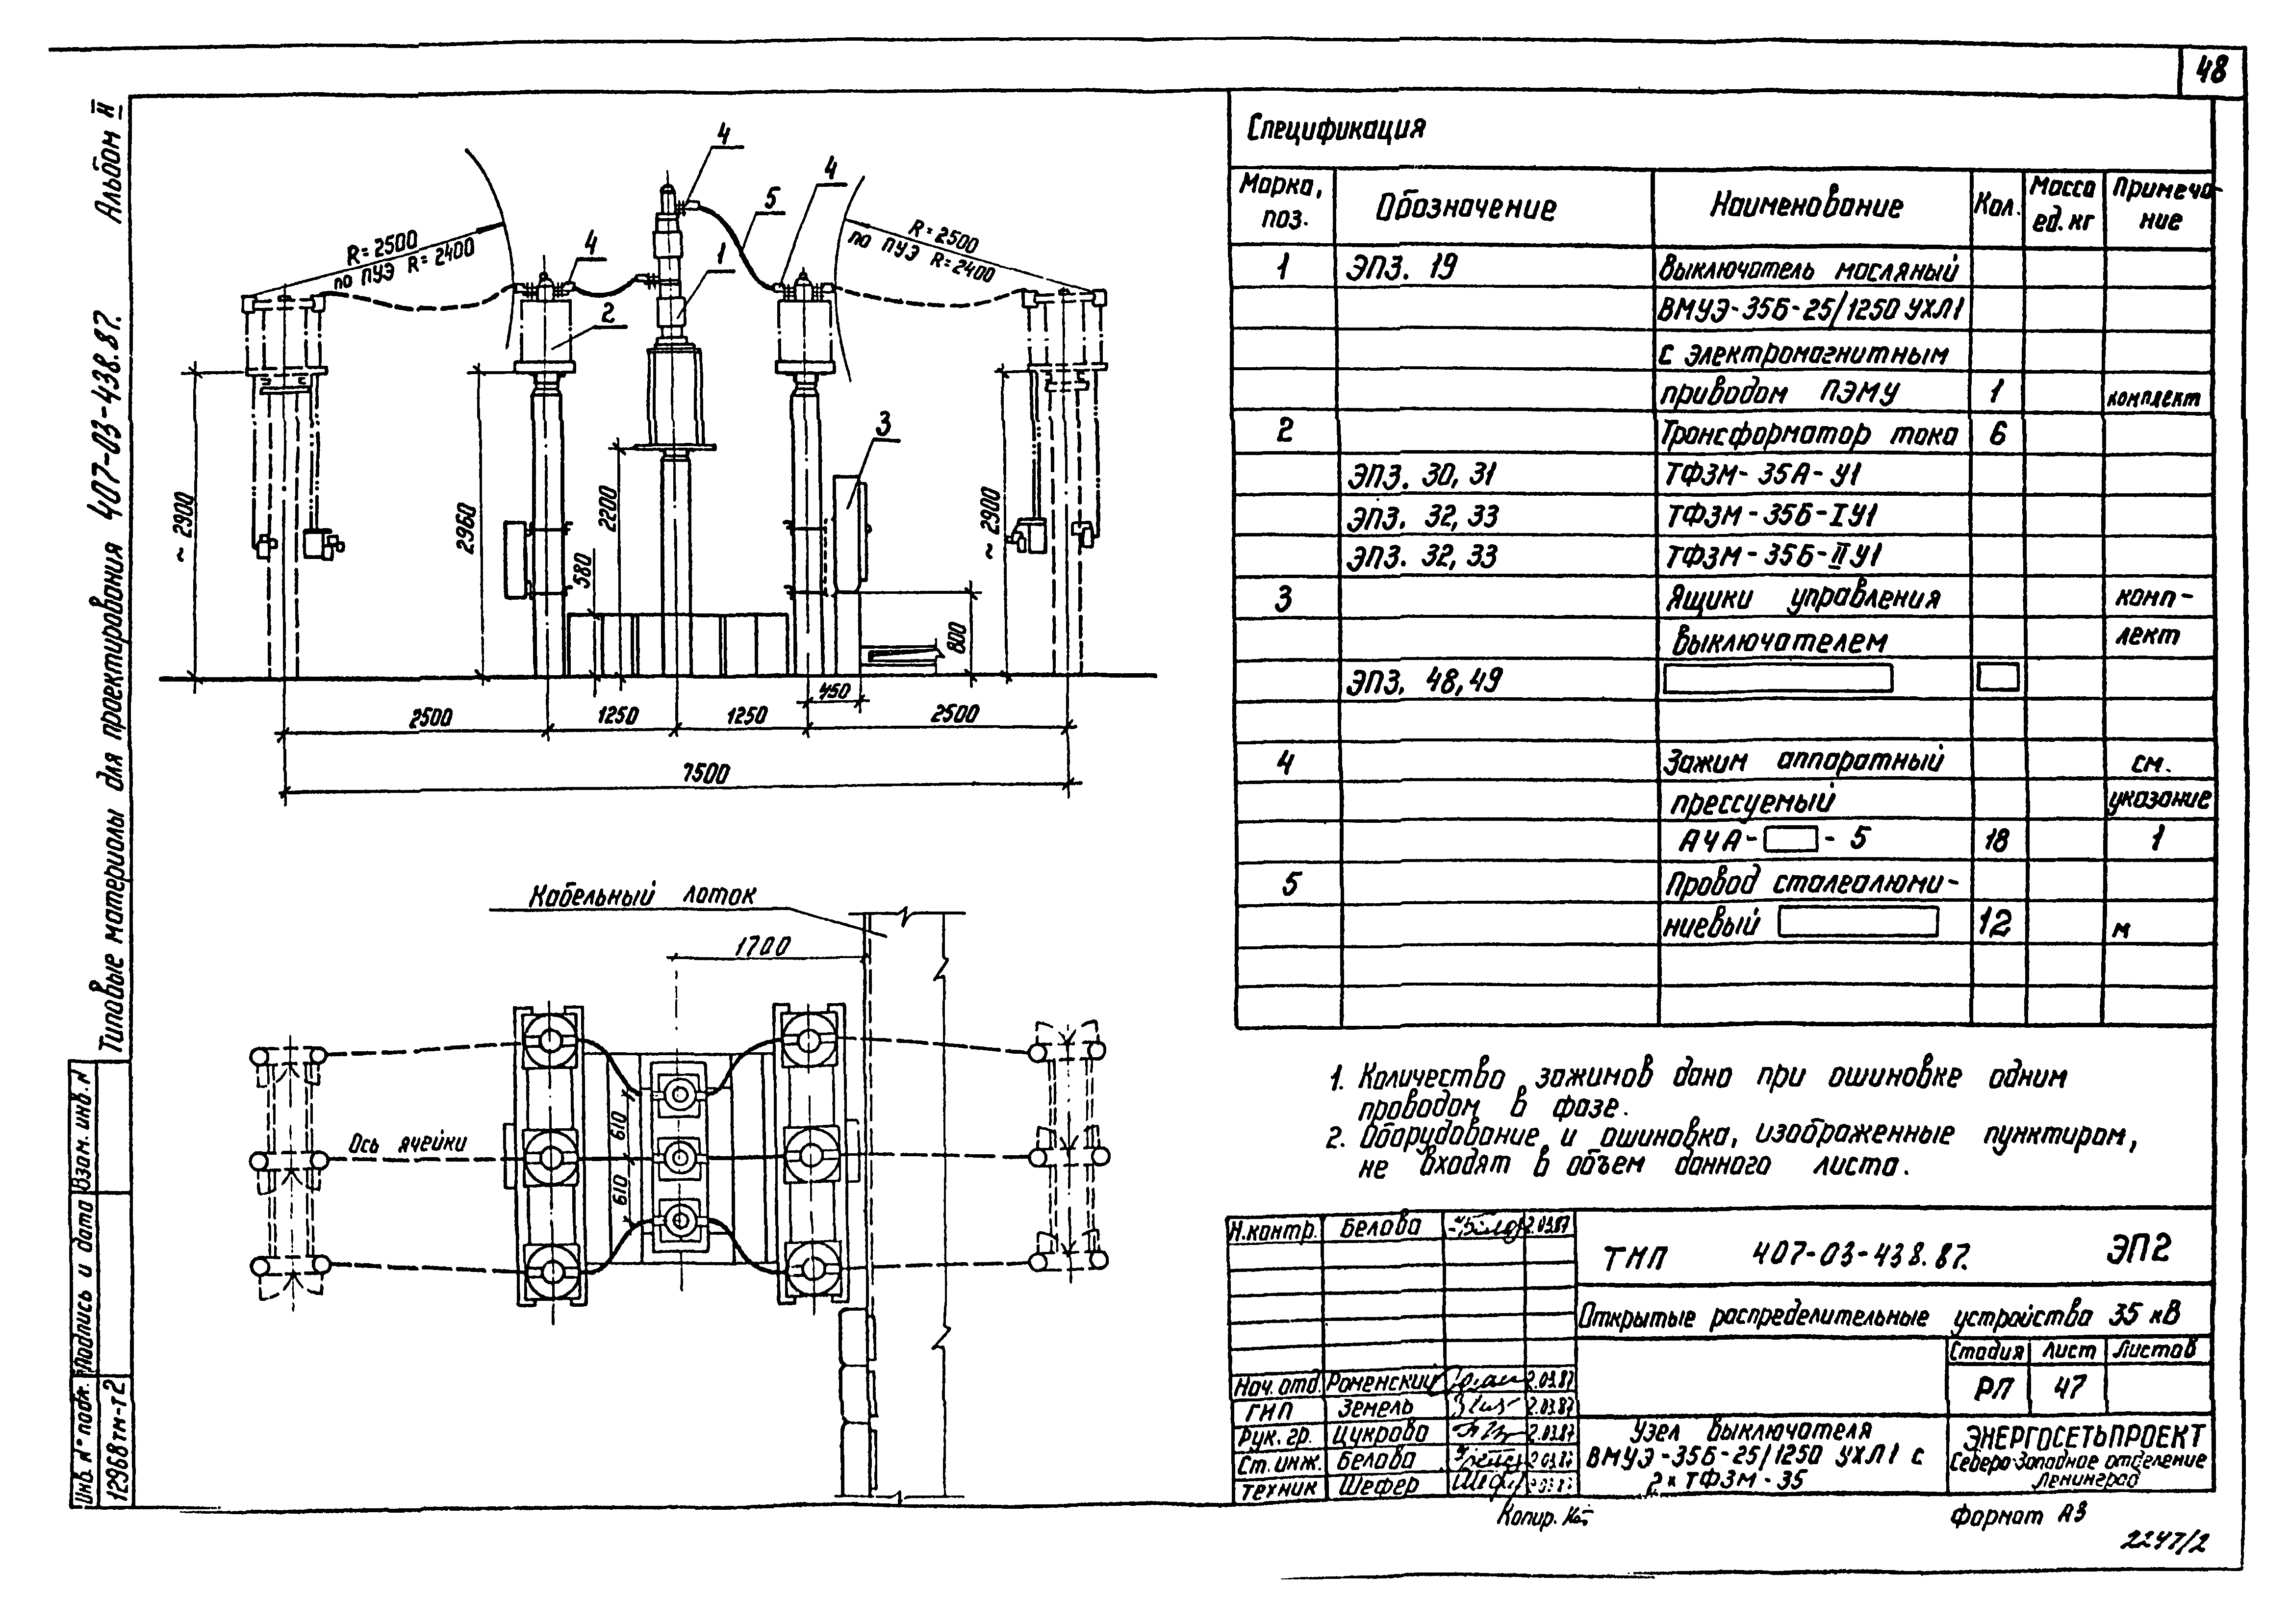 48
Альбом II
Типовые материалы для проектирования 407-03-438.87.
Взам. инв. №
Подпись и дата
Инв. № подл.
12968тм-т2
4
4
5
4
1
2
3
R=2500
по ПУЭ R=2400
R=2500
по ПУЭ R=2400
~2900
2960
2200
580
800
~2900
450
2500
1250
1250
2500
7500
Кабельный лоток
1700
Ось ячейки
610
610
Спецификация
Марка, поз. Обозначение Наименование Кол. Масса ед. кг Примечание
1 ЭП3. 19 Выключатель масляный
ВМУЭ-35Б-25/1250 УХЛ1
с электромагнитным
приводом ПЭМУ 1 комплект
2 Трансформатор тока 6
ЭП3. 30, 31 ТФЗМ-35А-У1
ЭП3. 32, 33 ТФЗМ-35Б-IУ1
ЭП3. 32, 33 ТФЗМ-35Б-IIУ1
3 Ящики управления комп-
выключателем лект
ЭП3. 48, 49
4 Зажим аппаратный см.
прессуемый указание
А4А- - 5 18 1
5 Провод сталеалюми-
ниевый 12 м
1. Количество зажимов дано при ошиновке одним
проводом в фазе.
2. Оборудование и ошиновка, изображенные пунктиром,
не входят в объем данного листа.
Н.контр. Белова 2.03.87
Нач. отд. Роменский 2.03.87
ГИП Земель 2.03.87
Рук. гр. Цукрова 2.03.87
Ст. инж. Белова 2.03.87
Техник Шефер
ТМП 407-03-438.87. ЭП2
Открытые распределительные устройства 35 кВ
Стадия Лист Листов
РП 47
Узел выключателя
ВМУЭ-35Б-25/1250 УХЛ1 с
2х ТФЗМ-35
ЭНЕРГОСЕТЬПРОЕКТ
Северо-Западное отделение
Ленинград
Копир.
Формат А3
2247/2